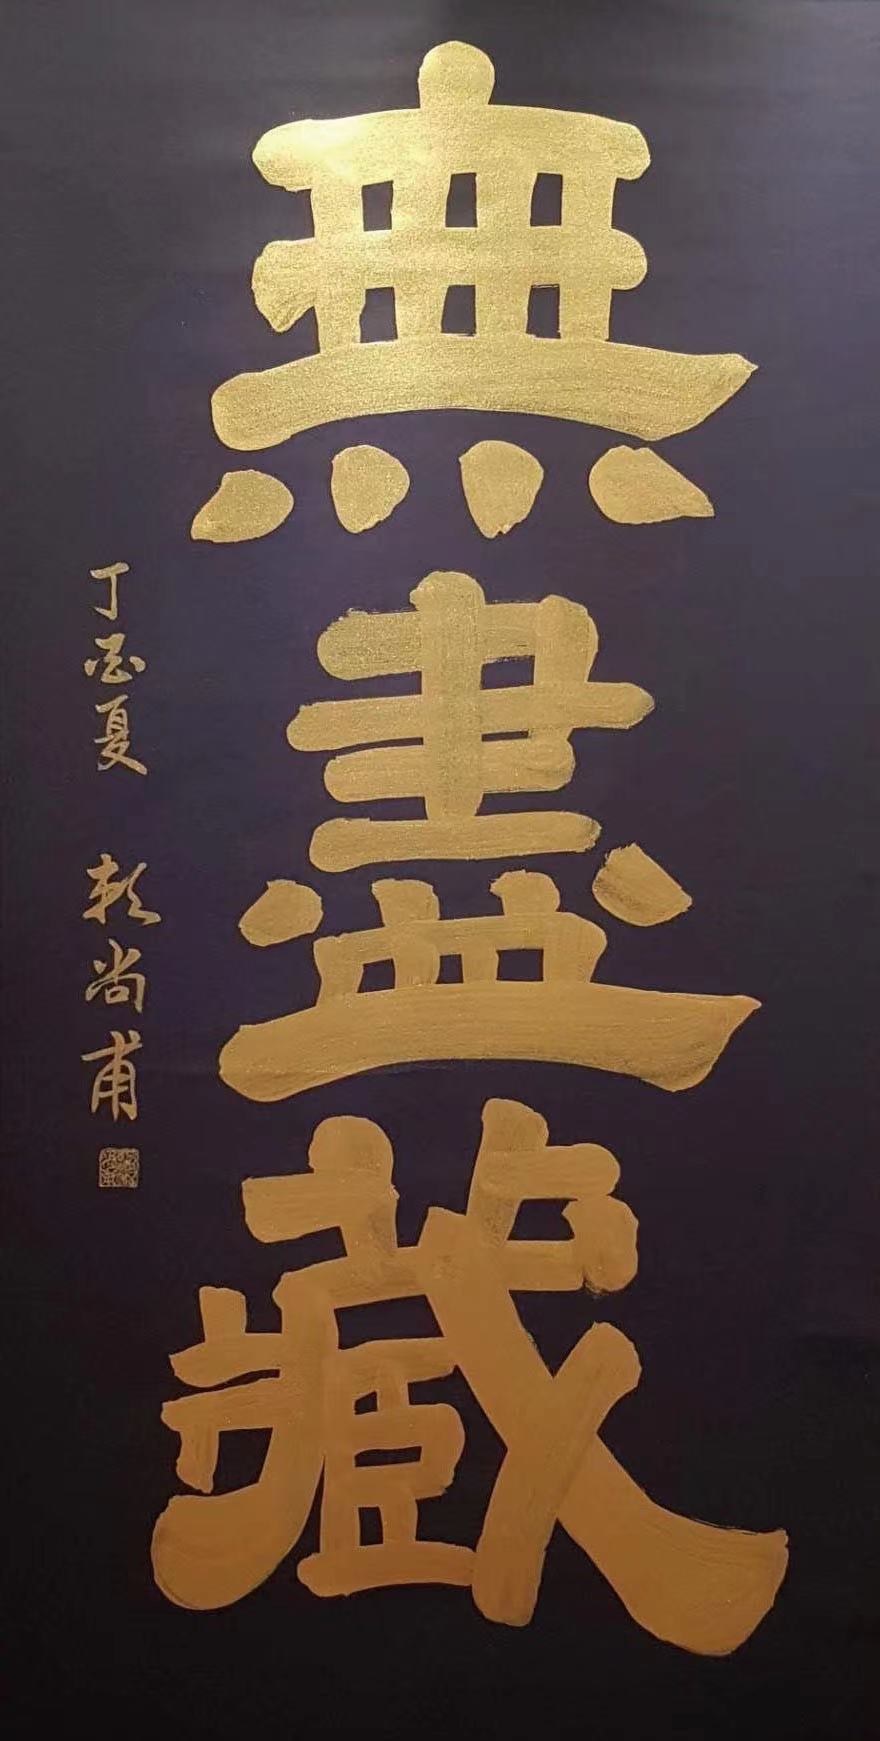 無盡藏
丁酉夏 尚甫